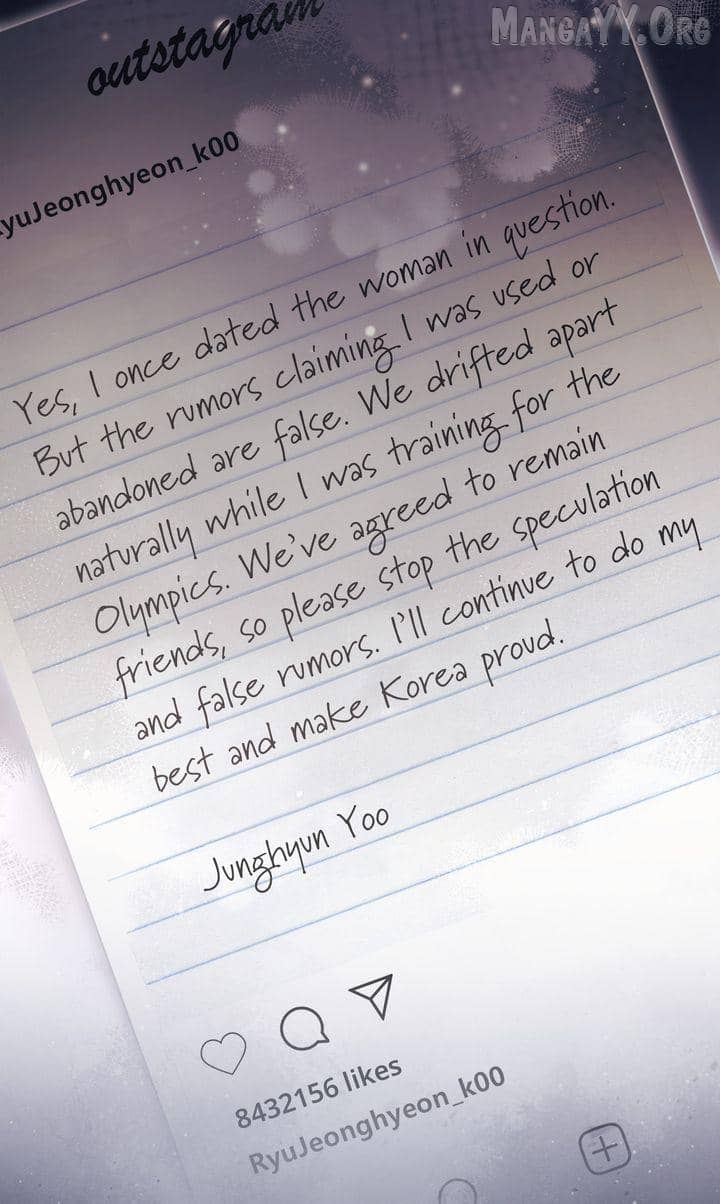 MangaYY.Org
outstagram
yuJeonghyeon_k00
Yes, I once dated the woman in question.
But the rumors claiming I was used or
abandoned are false. We drifted apart
naturally while I was training for the
Olympics. We've agreed to remain
friends, so please stop the speculation
and false rumors. I'll continue to do my
best and make Korea proud.
Junghyun Yoo
8432156 likes
RyuJeonghyeon_k00